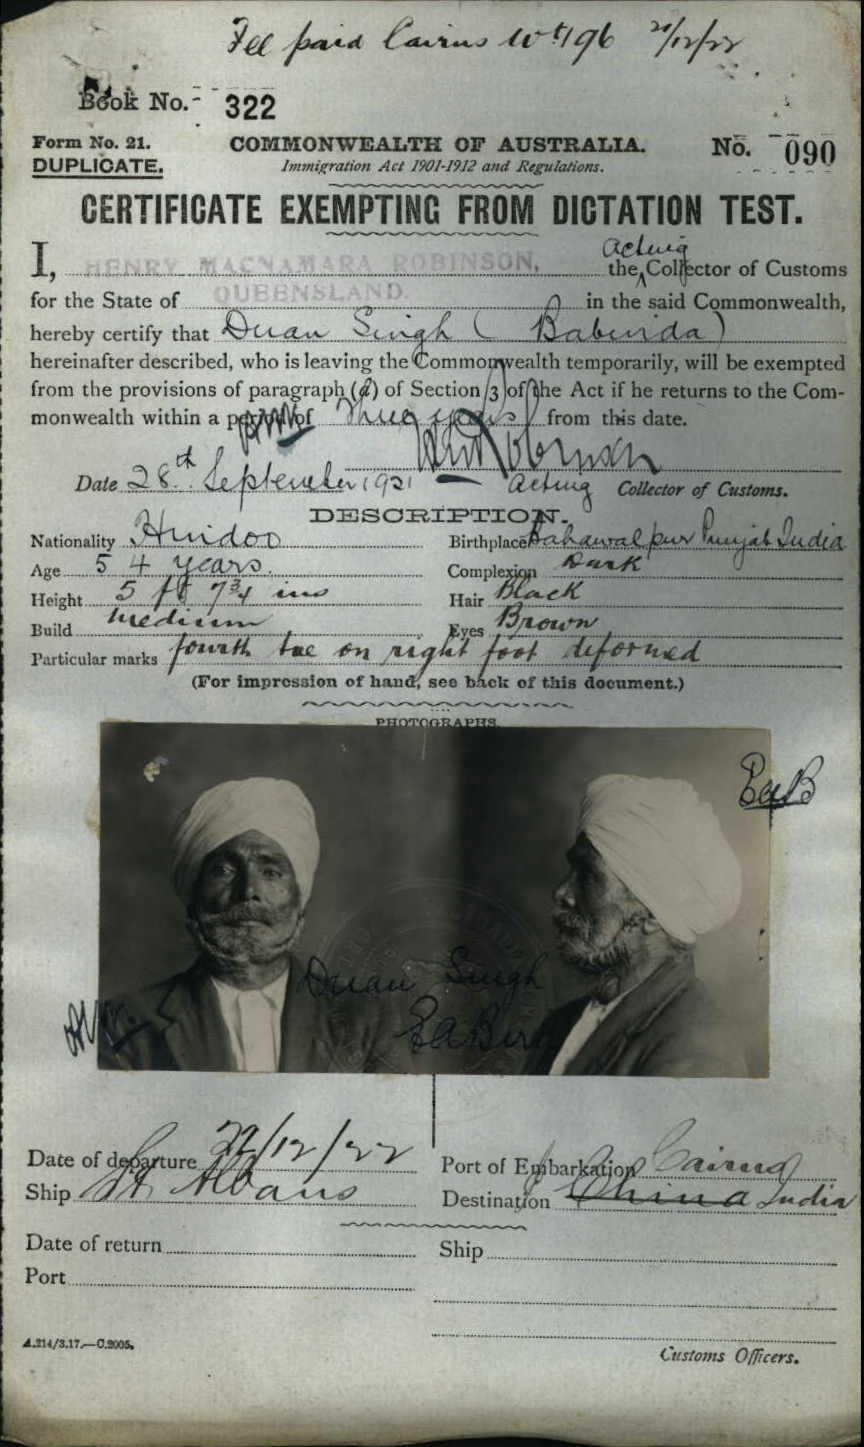 Fee paid Cairns No 196 21/12/22
Book No. 322
Form No. 21.
DUPLICATE.
COMMONWEALTH OF AUSTRALIA.
Immigration Act 1901-1912 and Regulations.
No. 090
CERTIFICATE EXEMPTING FROM DICTATION TEST.
I, HENRY MACNAMARA ROBINSON, the Acting Collector of Customs
for the State of QUEENSLAND. in the said Commonwealth,
hereby certify that Duan Singh (Babinda)
hereinafter described, who is leaving the Commonwealth temporarily, will be exempted
from the provisions of paragraph (a) of Section 3 of the Act if he returns to the Com-
monwealth within a period of Three years from this date.
Date 28th September 1921 Acting Collector of Customs.
DESCRIPTION.
Nationality Hindoo Birthplace Bahawalpur Punjab India
Age 54 years. Complexion Dark
Height 5 ft 7 3/4 ins Hair Black
Build medium Eyes Brown
Particular marks fourth toe on right foot deformed
(For impression of hand, see back of this document.)
PHOTOGRAPHS.
EAB
Duan Singh
Date of departure 22/12/22 Port of Embarkation Cairns
Ship St Albans Destination China India
Date of return Ship
Port
A.214/3.17.—C.2005.
Customs Officers.